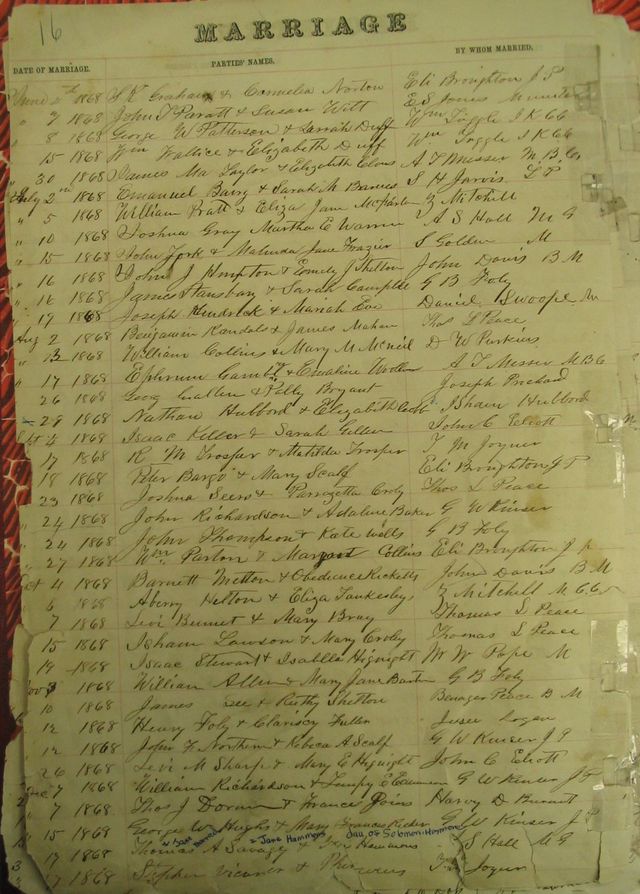 16
MARRIAGE
DATE OF MARRIAGE. PARTIES' NAMES. BY WHOM MARRIED.
June 1868 Graham & Cornelia Norton Eli Broughton J P
" 7 1868 John T Paratt & Susan Witt E S Jones
" 8 1868 George W Patterson & Sarah Duff Wm Tuggle J K 66
" 15 1868 Wm Wallice & Elizabeth Duff Wm Tuggle J K 66
" 30 1868 James Ma Taylor & Elizabeth A T Messer M.B.C.
July 2nd 1868 Emanuel Bary & Sarah A Barnes S H Jarvis L P
" 5 1868 William Pratt & Eliza Jane Z Mitchill
" 10 1868 Joshua Gray Martha E Warren A S Hall M G
" 15 1868 John York & Malinda Jane Frazier S Golden M
" 16 1868 John J Hmpton & Emely J Shelton John Davis B M
" 16 1868 James Stansbary & Sarah Campbell G B Foly
" 19 1868 Joseph Kindrick & Mariah Eve Daniel Swoope
Aug 2 1868 Benjamin Randols & James Mahan Thos L Peace
" 13 1868 William Collins & Mary M McNeil D W Parkins
" 17 1868 Ephrum Gambill & Emaline A T Messer M B C
" 26 1868 Georg & Polly Bryant Joseph Prichard
" 29 1868 Nathan Hubbord & Elizabeth Isham Hubbord
Sept 3 1868 Isaac Keller & Sarah John C Eliott
" 17 1868 R M Trosper & Matilda Trosper T M Joyner
" 18 1868 Peter Bargo & Mary Scalf Eli Broughton J P
" 23 1868 Joshua & Parrizetta Croly Thos L Peace
" 24 1868 John Richardson & Adaline Baker G W Kinser
" 24 1868 John Thompson & Kate Wells G B Foly
" 27 1868 Wm Parton & Margaret Collins Eli Broughton J P
Oct 4 1868 Barnett Mitton & Obedience Ricketts John Davis B M
" 6 1868 Abery Helton & Eliza Tankesley Z Mitchill M
7 1868 Levi Bennet & Mary Bray Thomas L Peace
15 1868 Isham Lawson & Mary Croley Thomas L Peace
19 1868 Isaac Stewart & Isabella Hignight W W Pope M
Nov 3 1868 William Allen & Mary Jane Barton G B Foly
10 1868 James Lee & Ruthy Shelton Peace B M
12 1868 Henry Foly & Clariscy Fuller Jesse Logan
12 1868 John F Northern & Rebeca A Scalf G W Kinser J P
26 1868 Levi M Sharp & Mary E Hignight John C Eliott
Dec 7 1868 William Richardson & G W Kinser J P
" 7 1868 Thos J Dorain & Frances Goins Harvy D Burnett
" 15 1868 George W Hughs & Mary Frances G W Kinser J P
" 17 1868 Thomas A Savage & Hammons S Hall M G
& Jane Hammons dau of Solomon Hammons
17 1868 Stephen & Joyner